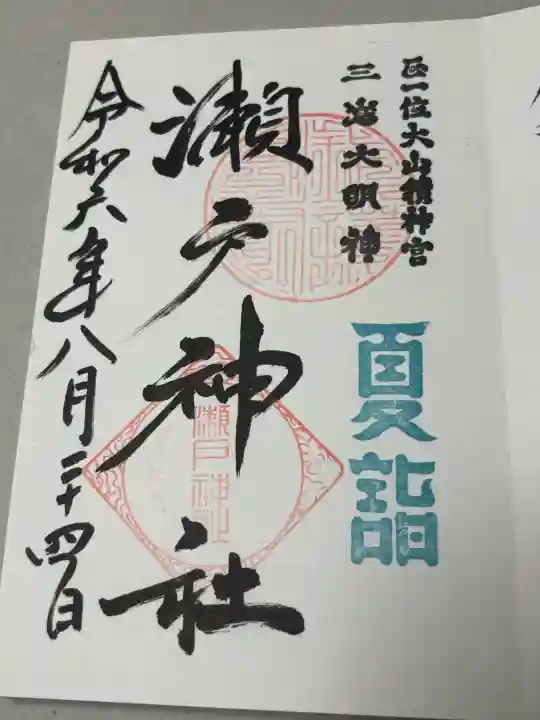 正一位大山積神宮
三島大明神
夏詣
瀬戸神社
瀬戸神社
令和六年八月二十四日